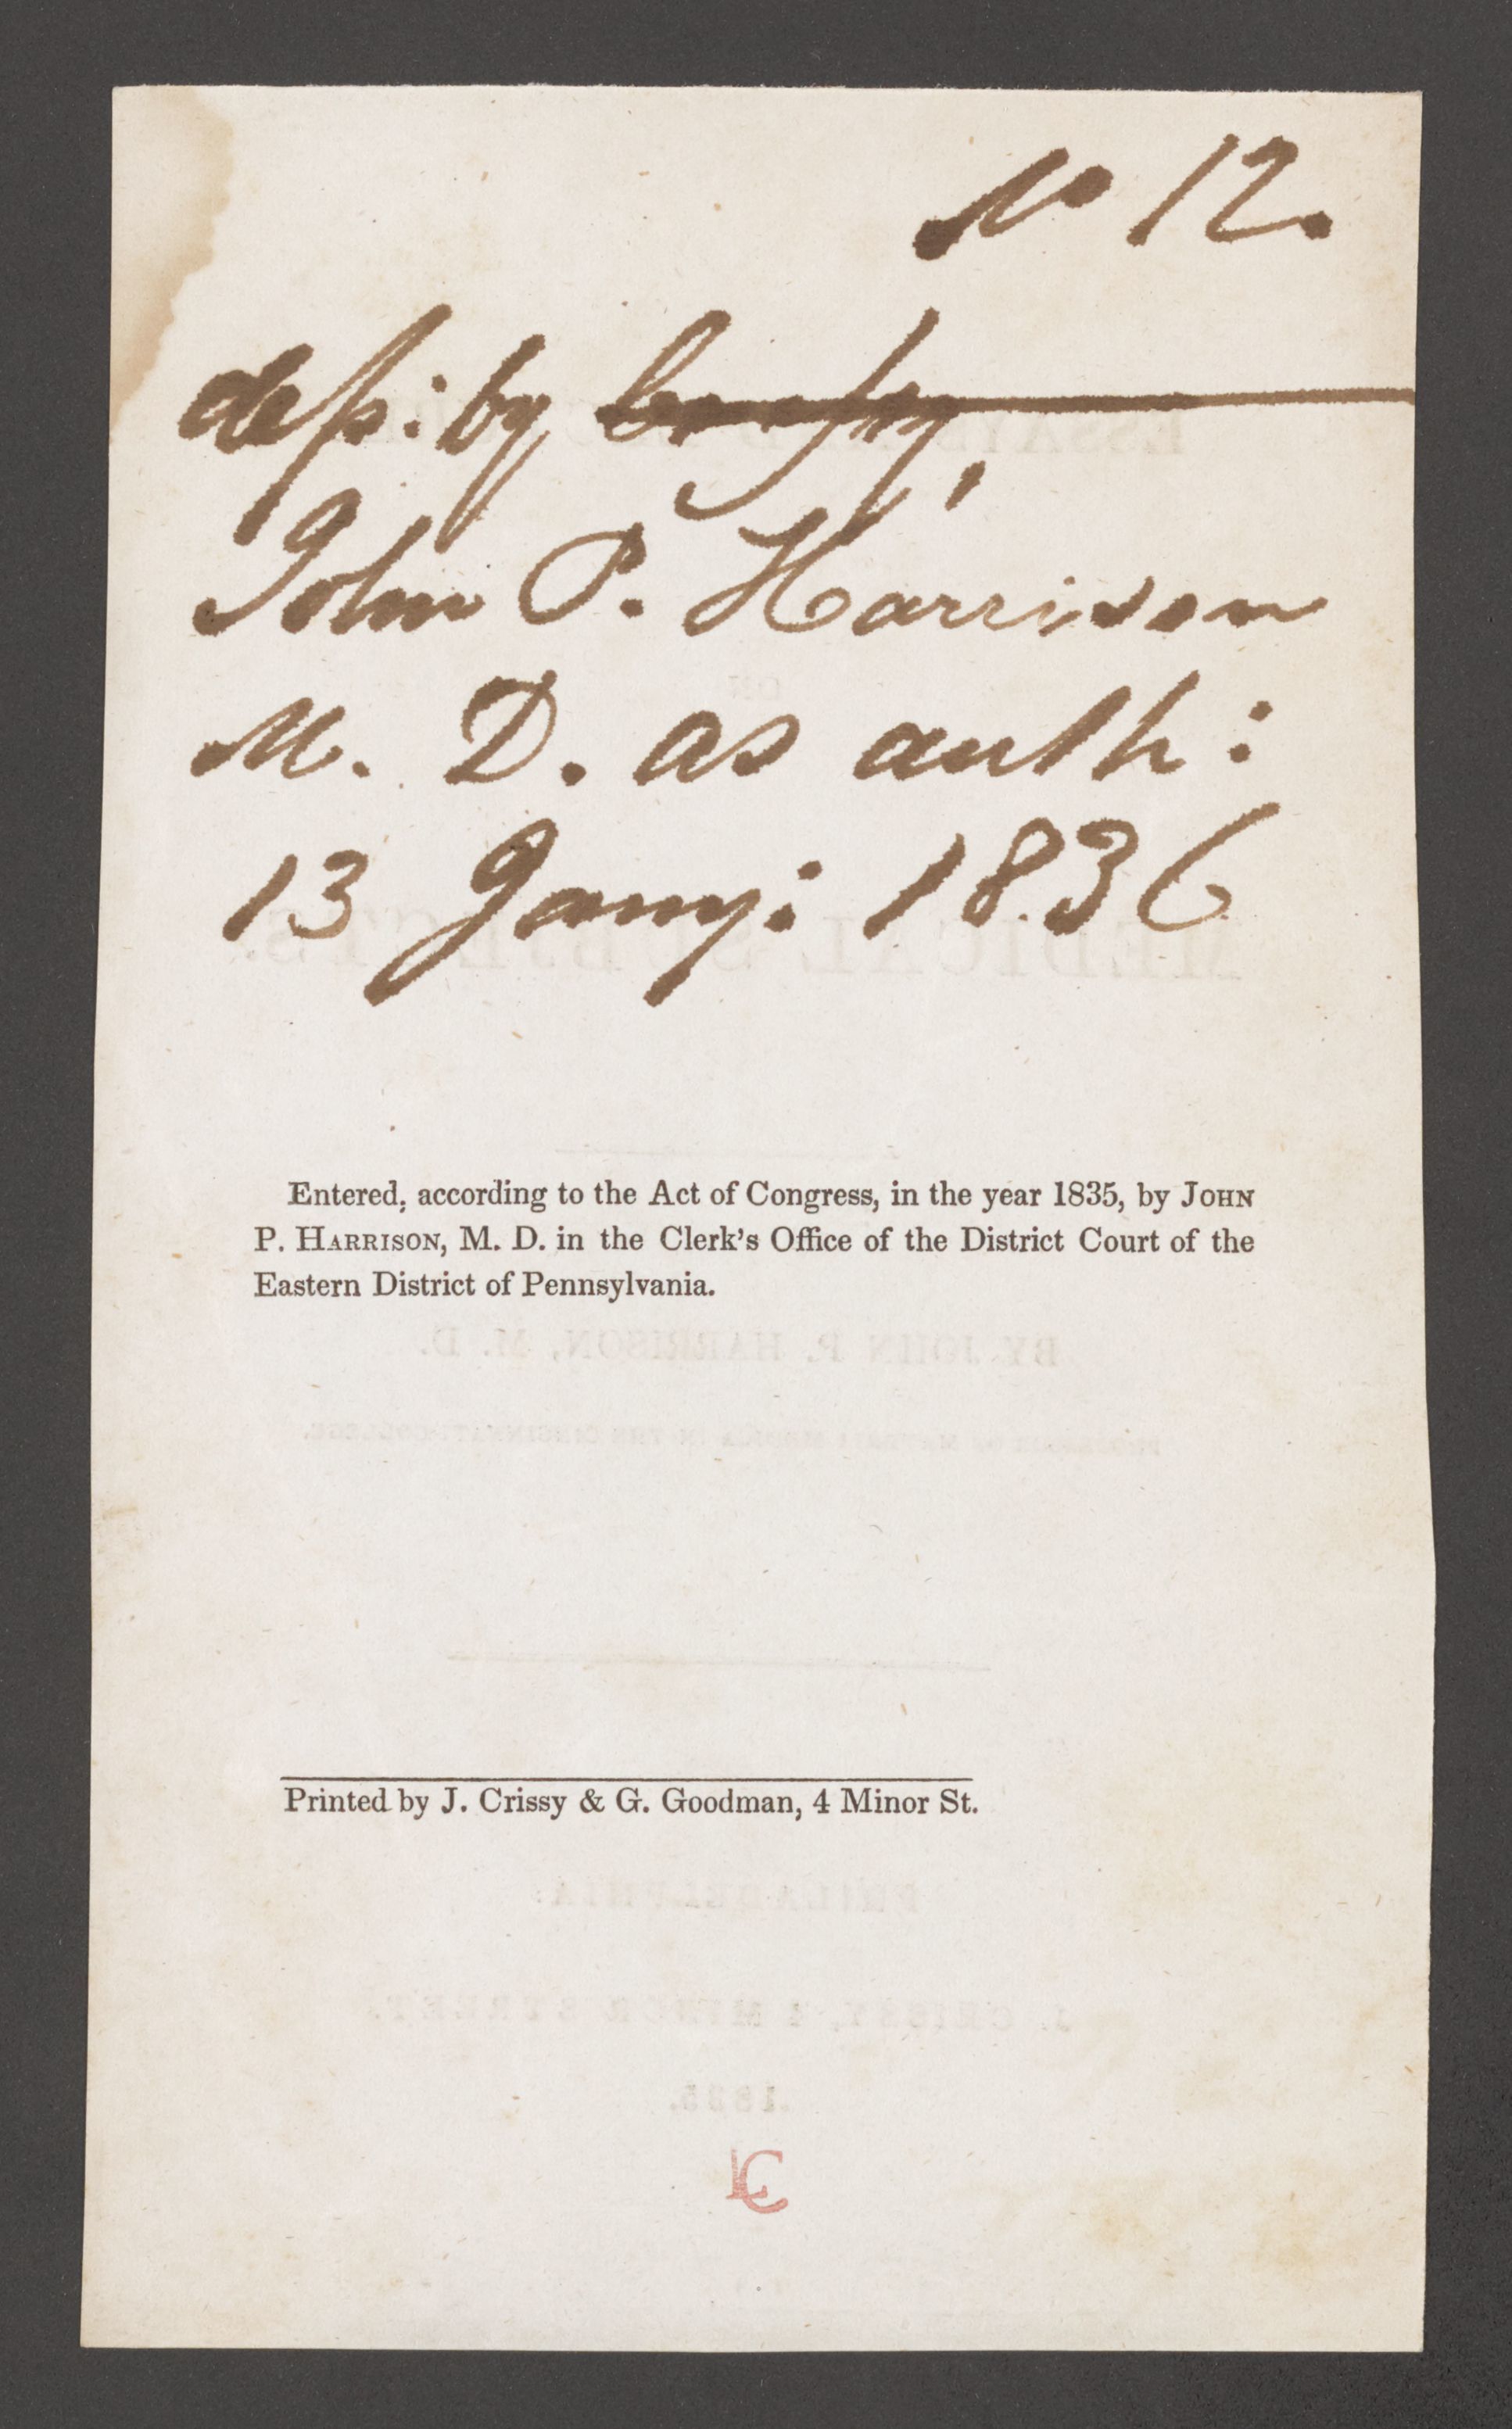 No 12.
dep: by
John P. Harrison
M. D. as auth:
13 Jany: 1836
Entered, according to the Act of Congress, in the year 1835, by John
P. Harrison, M. D. in the Clerk's Office of the District Court of the
Eastern District of Pennsylvania.
Printed by J. Crissy & G. Goodman, 4 Minor St.
LC